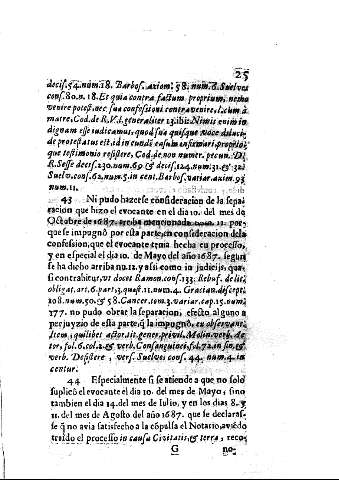 25
decis. 54. num. 18. Barbos. axiom. 58. num. 6. Suelves
cons. 80. n. 18. Et quia contra factum proprium, nemo
venire potest, nec sua confessioni contravenire, l. cum à
matre, Cod. de R. V. l. generaliter 13. ibi: Nimis enim in
dignam esse iudicamus, quod sua quisque voce dilucide
protestatus est, id in eundem casum infirmari, proprioque
testimonio resistere, Cod. de non numer. pecun. D.
R. Sesse decis. 230. num. 69. & decis. 124. num. 31. & 32.
Suelv. cons. 62. num. 5. in cent. Barbos. variar. axiom. 93.
num. 11.
43 Ni pudo hazerse consideracion de la sepa-
racion que hizo el evocante en el dia 10. del mes de
Octubre de 1687. arriba mencionada num. 11. por-
que se impugnò por esta parte, en consideracion de la
confession, que el evocante tenia hecha en processo,
y en especial el dia 10. de Mayo del año 1687. segun
se ha dicho arriba nu. 12. y assi como in judicijs, qua-
si contrahitur, ut docet Ramon. cons. 133. Rebuf. de lit.
obligat. art. 6. part. 3. quæst. 11. num. 4. Gracian. discept.
108. num. 50. & 58. Cancer. tom. 3. variar. cap. 15. num.
177. no pudo obrar la separacion, efecto alguno a
perjuyzio de esta parte, q̃ la impugnò, ex observant.
Item, quilibet actor. tit. gener. privil. Molin. verb. Ac-
tor, fol. 6. col. 2. & verb. Consanguinei, fol. 72. in fin. &
verb. Desistere, vers. Suelves cons. 44. num. 4. in
centur.
44 Especialmente si se atiende a que no solo
suplicò el evocante el dia 10. del mes de Mayo, sino
tambien el dia 14. del mes de Iulio, y en los dias 8. y
11. del mes de Agosto del año 1687. que se declaras-
se q̃ no avia satisfecho a la còpulsa el Notario, aviẽdo
traìdo el processo in causa Civitatis, & terra, reco-
G no-